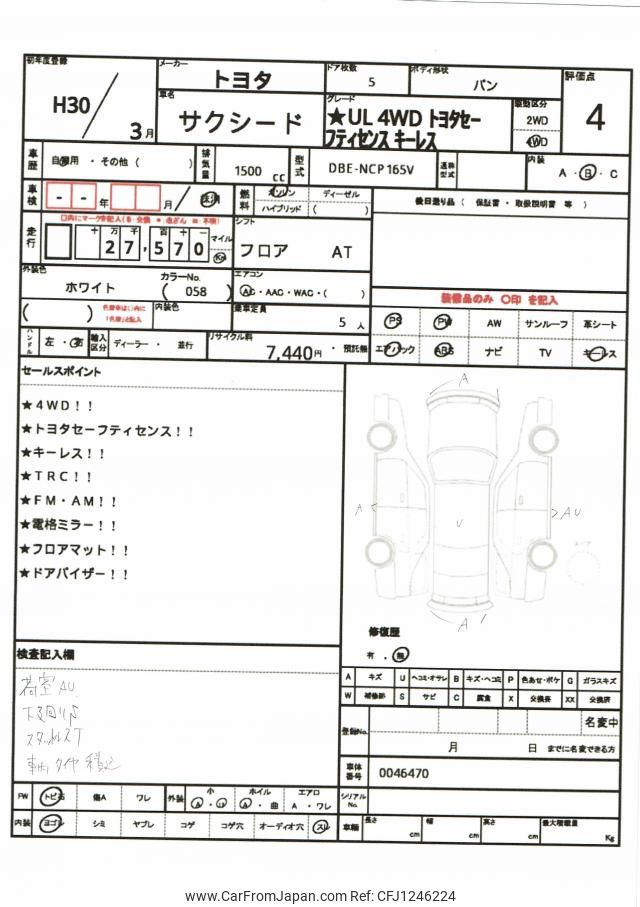 初年度登録
H30 / 3月
メーカー
トヨタ
ドア枚数
5
ボディ形状
バン
評価点
4
車名
サクシード
グレード
★UL 4WD トヨタセーフティセンス キーレス
駆動区分
2WD
4WD
車歴
自家用 ・ その他 ( )
排気量
1500 cc
型式
DBE-NCP165V
通称型式
内装
A ・ B ・ C
車検
- - 年 月 / 抹消
燃料
ガソリン ディーゼル
ハイブリッド ( )
後日送り品 ( 保証書 ・ 取扱説明書 等 )
走行
十 万 千 百 十 一
27,570
マイル
Km
シフト
フロア AT
外装色
ホワイト
カラーNo.
( 058 )
エアコン
AC・AAC・WAC・( )
装備品のみ 〇印 を記入
( )
内装色
乗車定員
5 人
PS PW AW サンルーフ 革シート
エアバック ABS ナビ TV キーレス
ハンドル
左 ・ 右
輸入区分
ディーラー ・ 並行
リサイクル料
7,440円 ・ 預託無
セールスポイント
★4WD!!
★トヨタセーフティセンス!!
★キーレス!!
★TRC!!
★FM・AM!!
★電格ミラー!!
★フロアマット!!
★ドアバイザー!!
A
A
AU
U
A
修復歴
有 ・ 無
検査記入欄
荷室AU
下廻りS
スタッドレスT
車内タイヤ積込
A キズ U ヘコミ・オサレ B キズ・ヘコミ P 色あせ・ボケ G ガラスキズ
W 補修跡 S サビ C 腐食 X 交換要 XX 交換済
登録No.
名変中
月 日 までに名変できる方
車体番号
0046470
シリアルNo.
FW トビ石 傷A ワレ
外装 小 A ・ U ホイル A ・ 曲 エアロ A ・ ワレ
内装 ヨゴレ シミ ヤブレ コゲ コゲ穴 オーディオ穴 スレ
車輌
長さ cm
幅 cm
高さ cm
最大積載量 Kg
www.CarFromJapan.com Ref: CFJ1246224